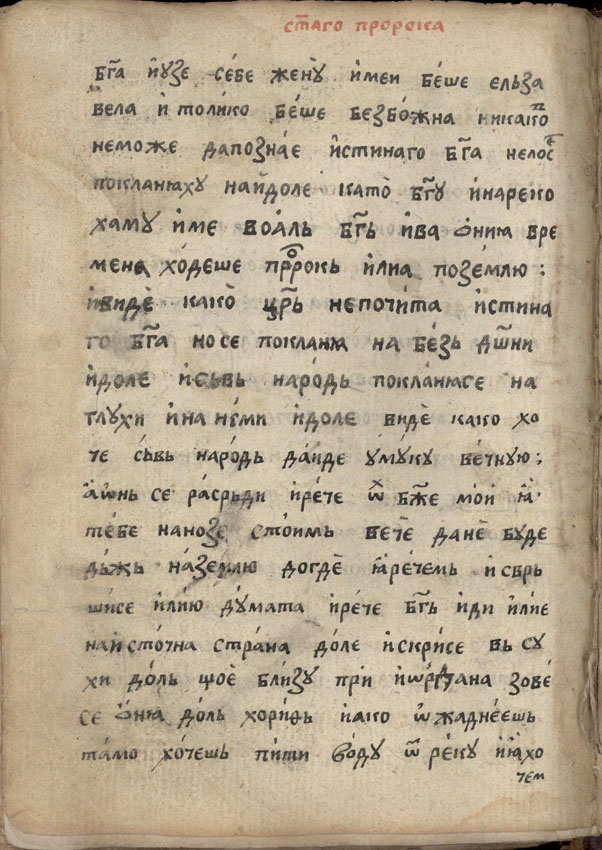 ст҃аго пророка
бг҃а и҆узе себе жену̀ и҆мен бе́ше ельза
вела и҆ толико бе́ше безбо́жна никакоп
неможе дапозна́е и҆стинаго бг҃а нелос
покланꙗху наи́доле като̀ бг҃у и҆нареко
хаму и҆ме воа́ль бг҃ь и҆ва ѻ҆ниꙗ вре
мена хо́деше пррⷪ҇окь и҆лиа позе́млю :
и҆видѐ како̀ цр҃ь непочи́та и҆стина
го бг҃а носе покланꙗ на бе́зь дш҃ни
и҆доле и҆сьвь наро́дь покланꙗсе на
глухи и҆на не́ми и҆доле видѐ како хо
че сьвь наро́дь да́иде у҆ му́ку ве́чную ;
а҆ѡ́нь се ра́срьди и҆ре́че ѽ бж҃е мо́и ꙗ҆
те́бе нанозѐ сто́имь вече данѐ буде
дь́жь на́землю догдѐ ꙗ҆ре́чемь и҆ сврь
шисе и҆лию ду́мата и҆ре́че бг҃ь и҆ди и҆лїе
наи҆сто́чна стра́на до́ле и҆скри́се вь су
хи до́ль щоѐ близу при и҆ѡрдана зове́
се ѻ҆ниꙗ до́ль хориѳь и҆ако ѡ҆жадне́ешь
та́мо хо́чешь пи́ти во́ду ѿ ре́ку и҆ꙗ҆хо
чем